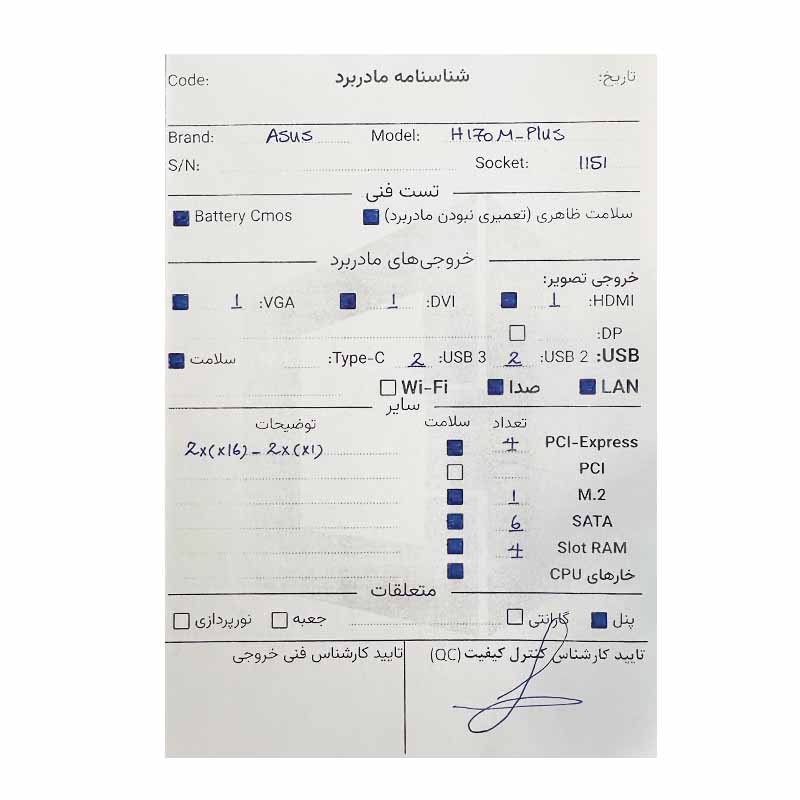 تاریخ: شناسنامه مادربرد Code:
Brand: ASUS Model: H170M-Plus
S/N: Socket: 1151
تست فنی
سلامت ظاهری (تعمیری نبودن مادربرد) Battery Cmos
خروجی‌های مادربرد
خروجی تصویر:
HDMI: 1 DVI: 1 VGA: 1
DP:
USB: USB 2: 2 USB 3: 2 Type-C: سلامت
LAN صدا Wi-Fi
سایر
تعداد سلامت توضیحات
PCI-Express 4 2x(x16) - 2x(x1)
PCI
M.2 1
SATA 6
Slot RAM 4
خارهای CPU
متعلقات
پنل گارانتی جعبه نورپردازی
تایید کارشناس کنترل کیفیت (QC) تایید کارشناس فنی خروجی